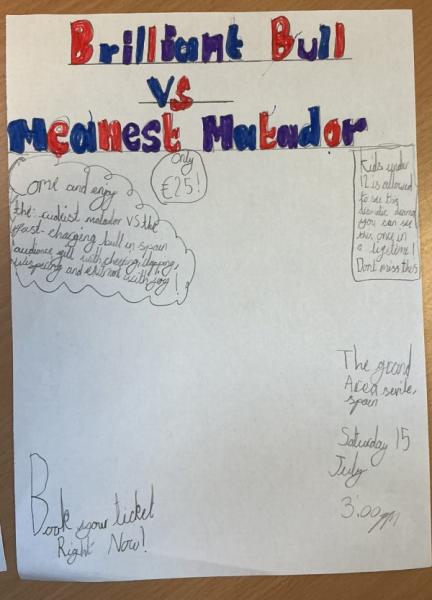 Brilliant Bull
Vs
Meanest Matador
Only
£25!
Come and enjoy
the rudiest matador VS the
fast-charging bull in spain
audience gill with cheering, clapping,
wispering and exitment with joy!
Kids under
12 is allowed
to see this
dramatic
you can see
this once in
a lifetime!
Dont miss this
The grand
Area sevile,
spain
Saturday 15
July
3:00pm
Book your ticket
Right Now!